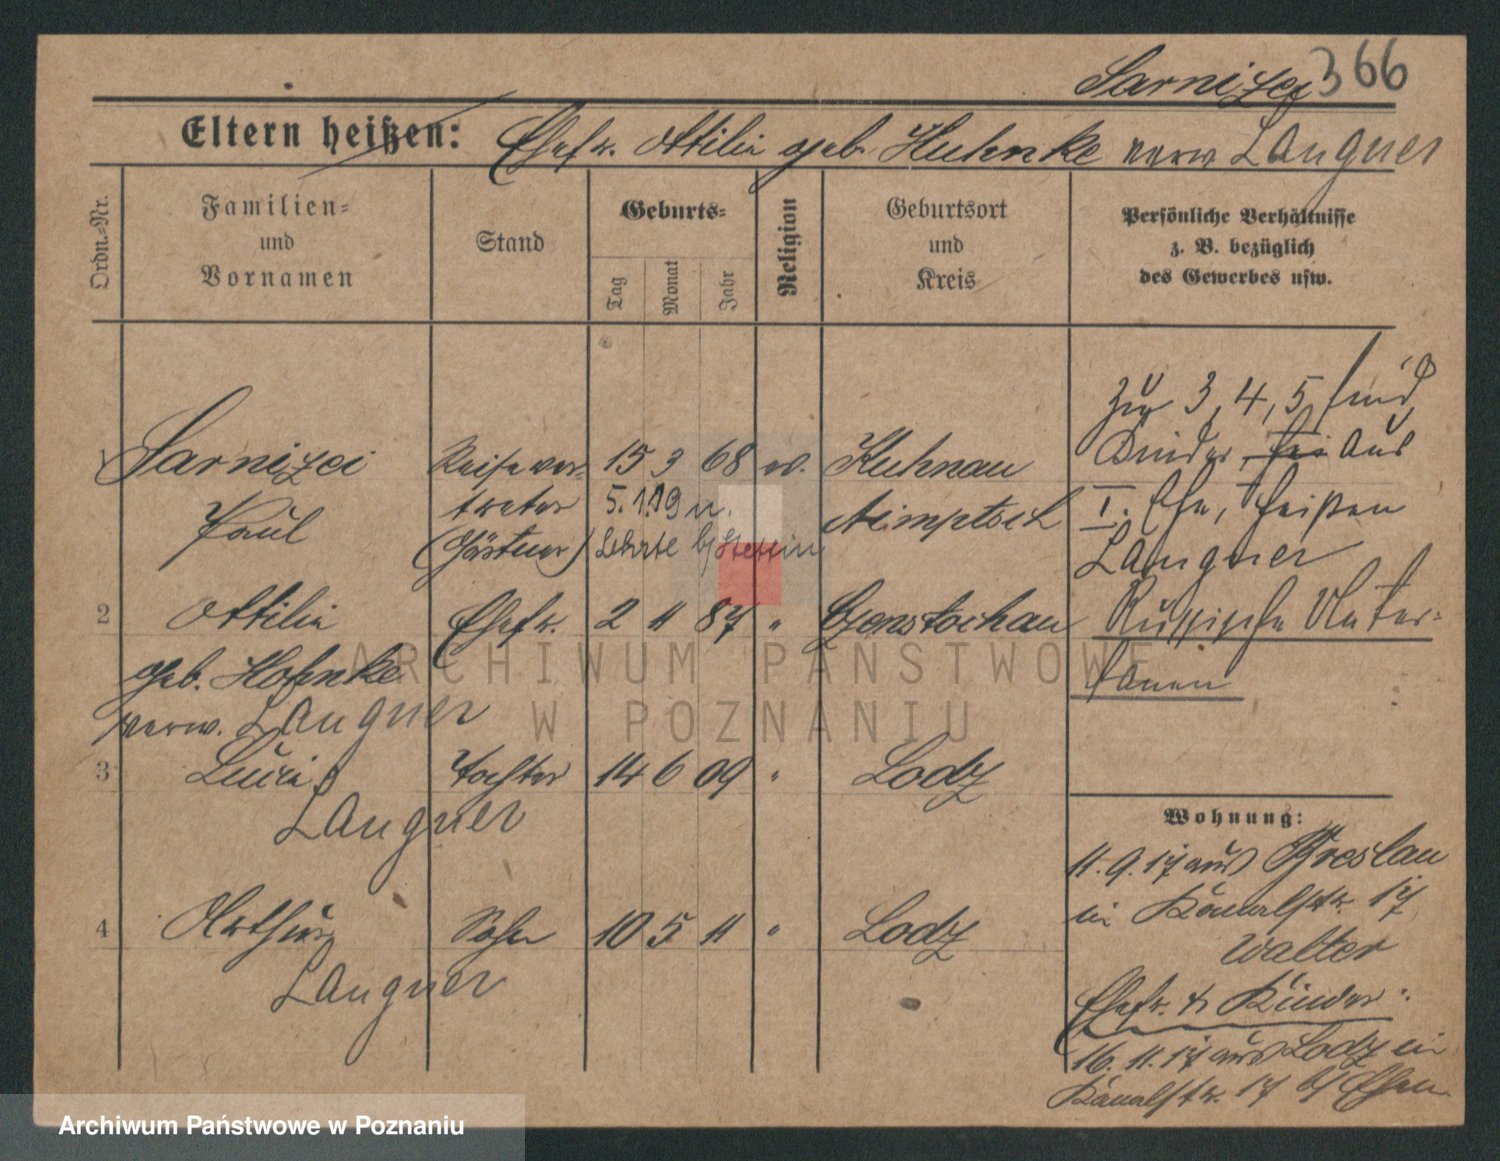 Sarnizei 366
Eltern heißen: Ehefr. Ottilie geb. Huhnke verw Langner
Ordn.-Nr.
Familien- und Vornamen
Stand
Geburts-
Tag Monat Jahr
Religion
Geburtsort und Kreis
Persönliche Verhältnisse
z. B. bezüglich
des Gewerbes usw.
1 Sarnizei Reisever- 15 3 68 ev. Kuhnau
Paul treter 5.1.19 n. Nimptsch
(Gärtner) b/ Stettin
2 Ottilie Ehefr. 2 11 87 " Czenstochau
geb. Hohnke
verw. Langner
3 Lucie Tochter 14 6 09 " Lodz
Langner
4 Arthur Sohn 10 5 11 " Lodz
Langner
Zu 3, 4, 5, sind
Kinder, aus
I. Ehe, heißen
Langner
Russische Unter-
tanen
Wohnung:
11.9.17 aus Breslau
in Kanalstr. 17
Walter
Ehefr. & Kinder:
16.11.17 aus Lodz in
Kanalstr. 17 b/
ARCHIWUM PAŃSTWOWE
W POZNANIU
Archiwum Państwowe w Poznaniu